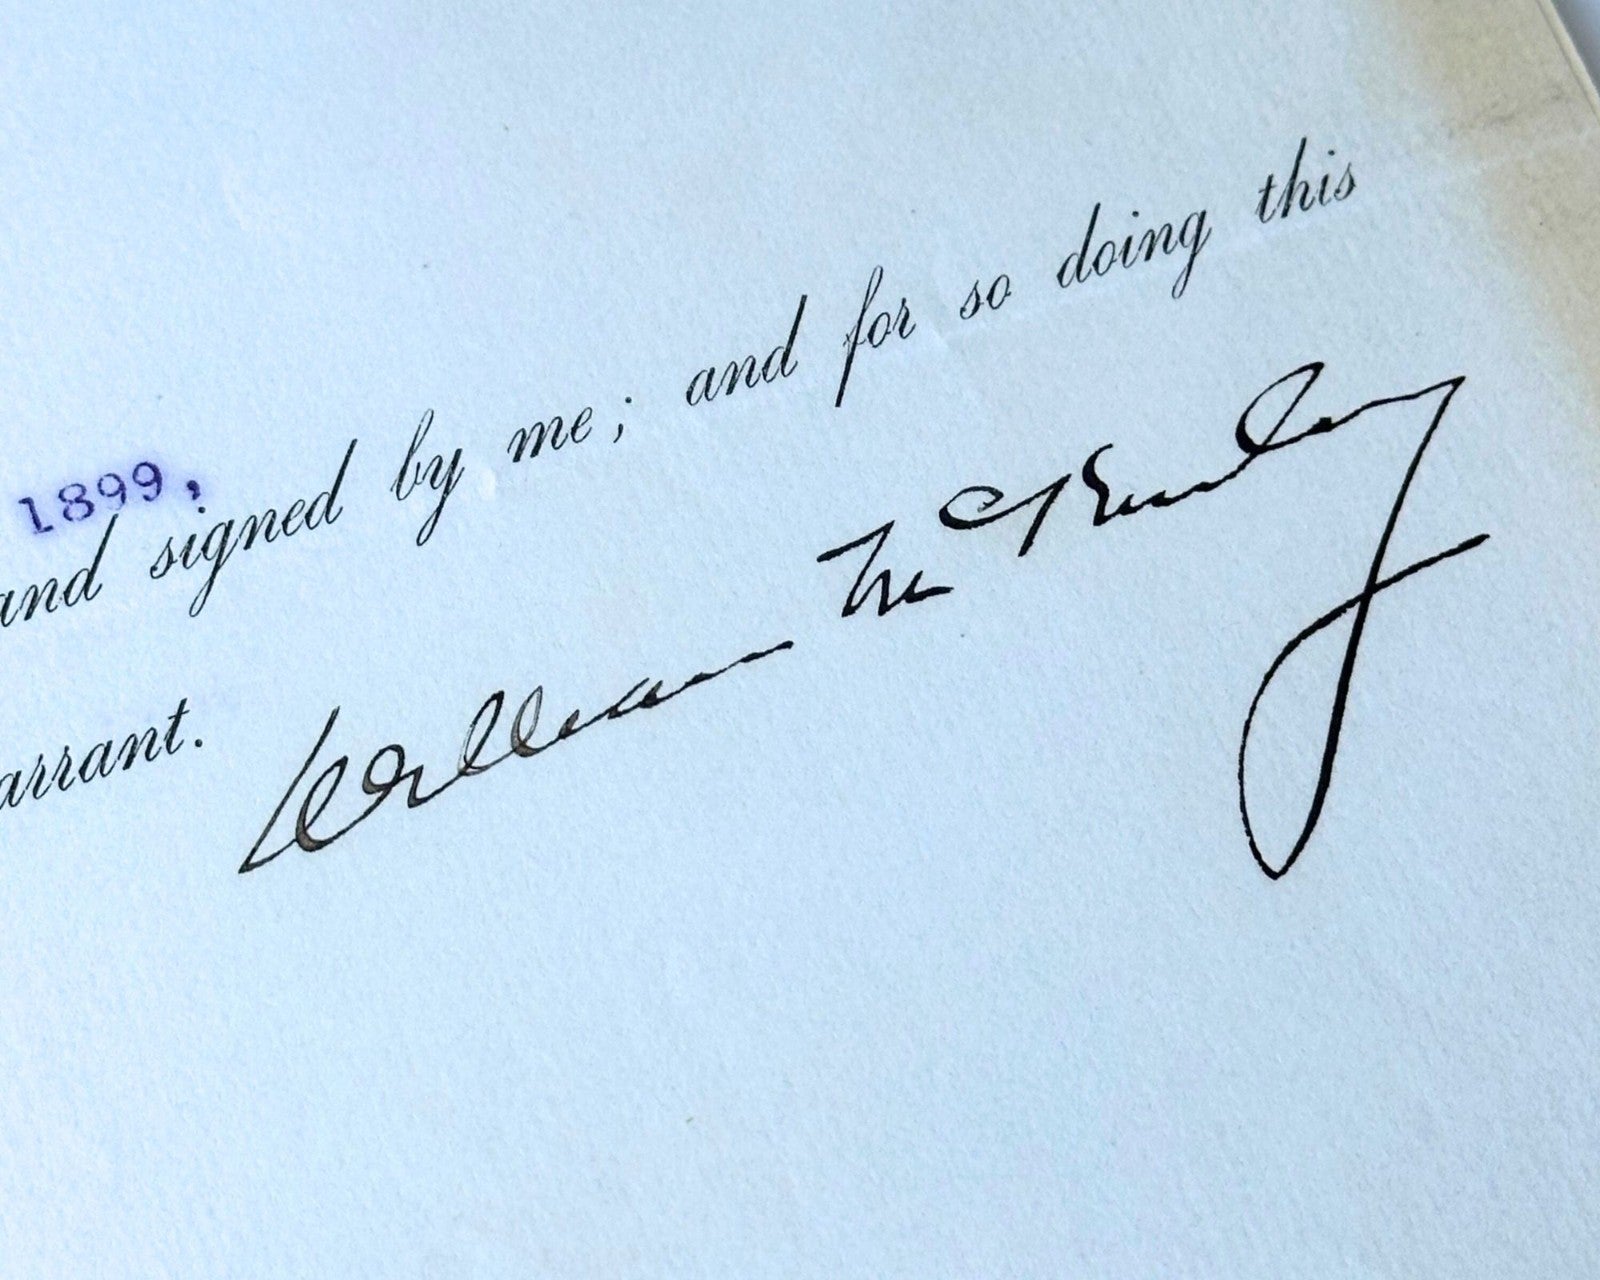 1899,
and signed by me; and for so doing this
arrant.
William McKinley